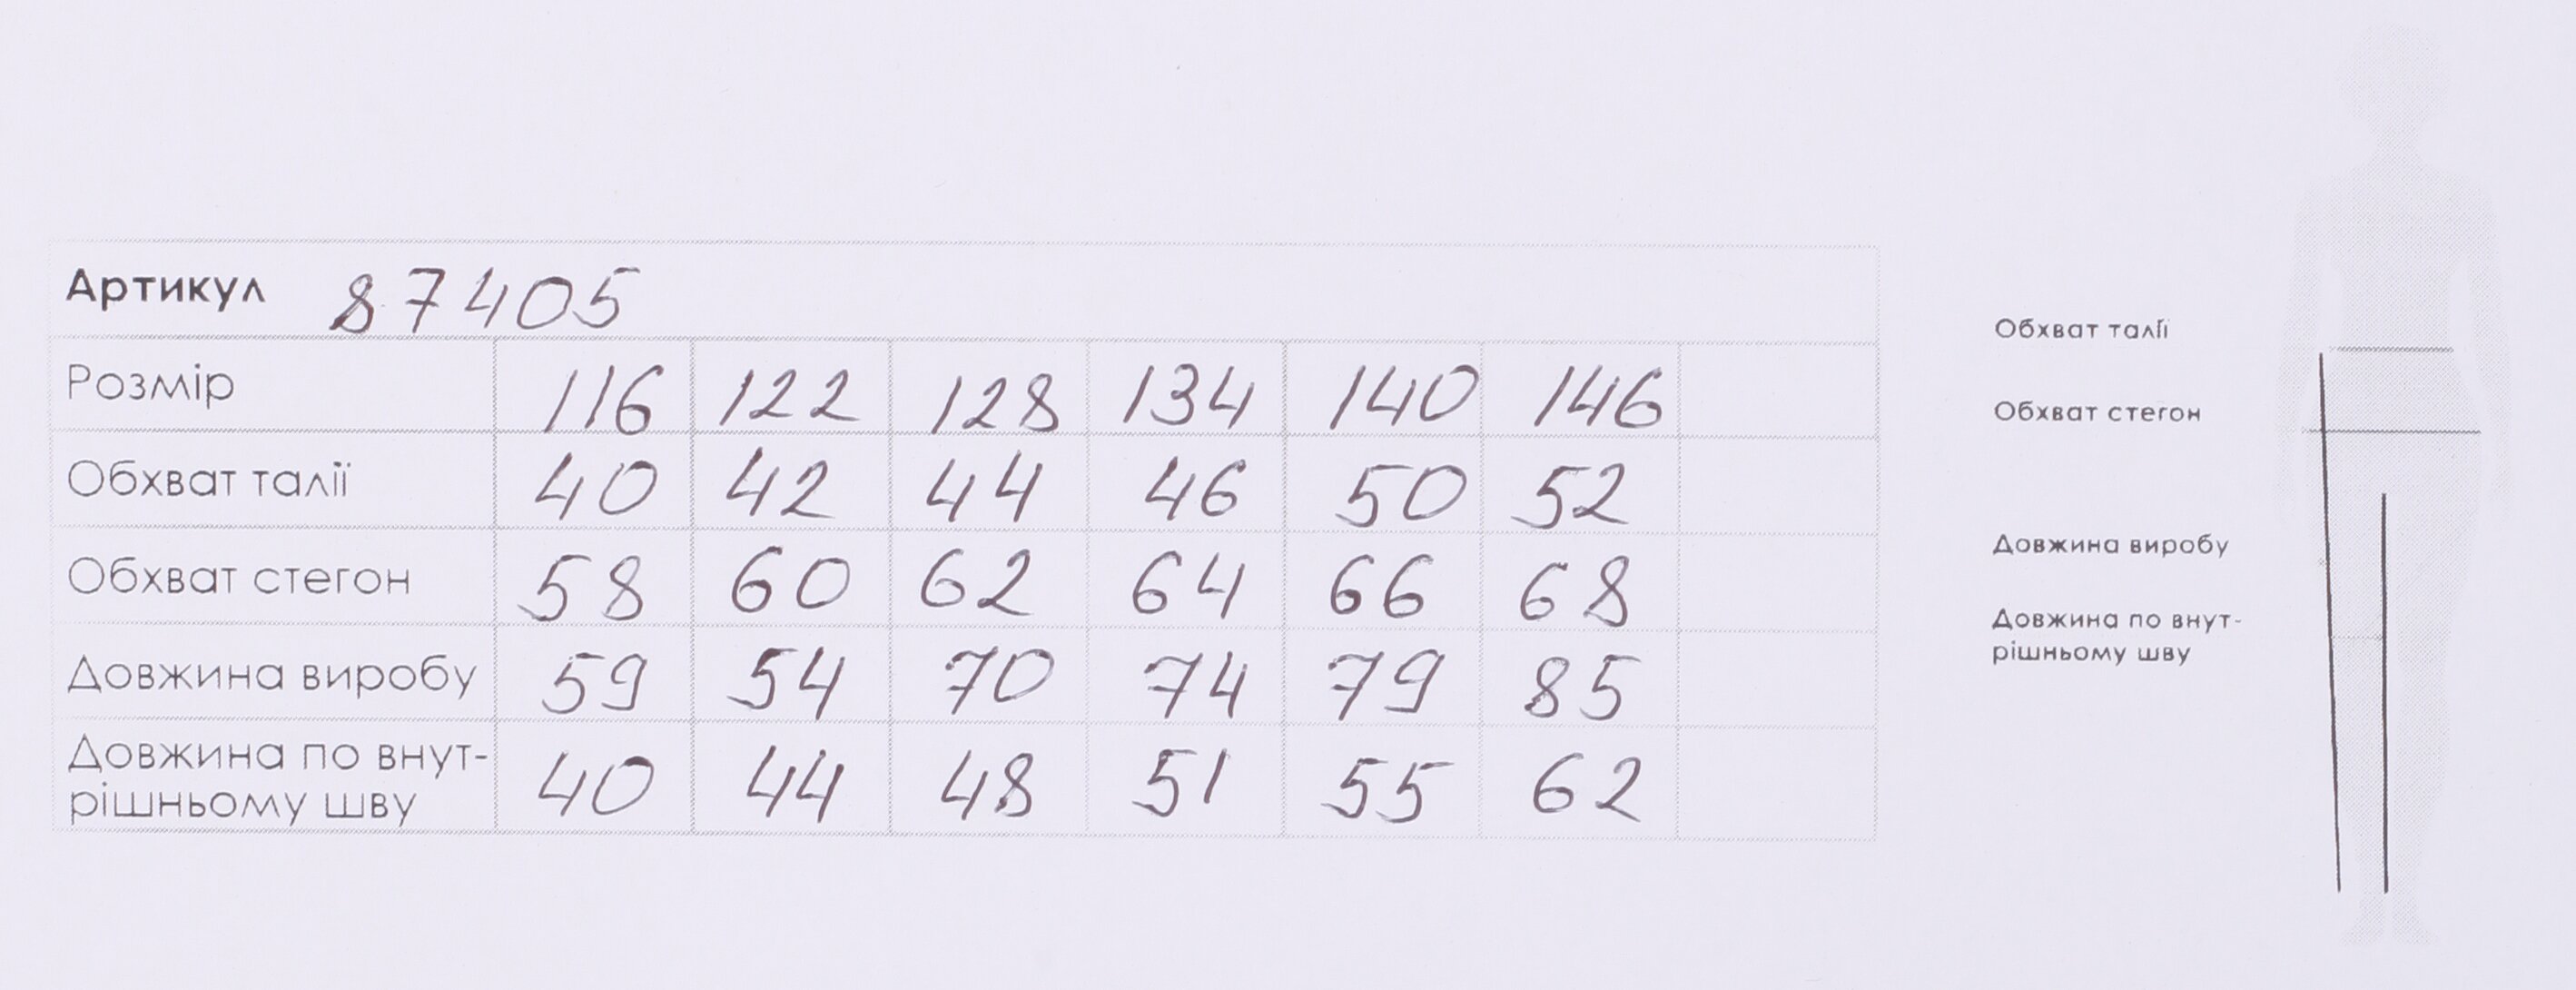 Артикул 87405
Розмір 116 122 128 134 140 146
Обхват талії 40 42 44 46 50 52
Обхват стегон 58 60 62 64 66 68
Довжина виробу 59 54 70 74 79 85
Довжина по внут-
рішньому шву 40 44 48 51 55 62
Обхват талії
Обхват стегон
Довжина виробу
Довжина по внут-
рішньому шву